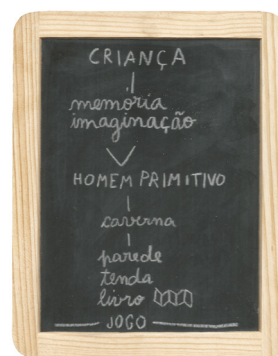 CRIANÇA
memória
imaginação
HOMEM PRIMITIVO
caverna
parede
tenda
livro
JOGO